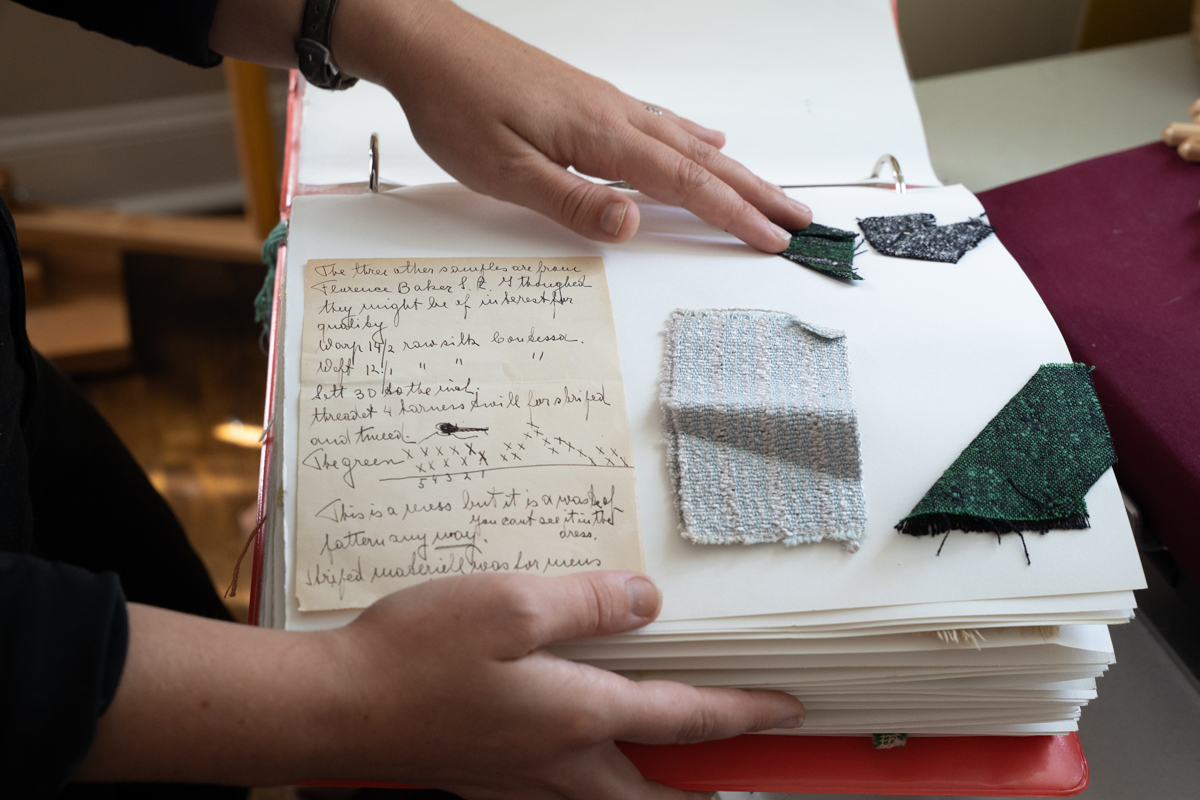 The three other samples are from
Florence Baker S. I thoughed
they might be of interest for
quality
Warp 14/2 raw silk Contessa.
Weft 12/1 " " "
Sett 30 to the inch.
threadet 4 harness twill for striped
and tweed.
The green
5 4 3 2 1
This is a mess but it is a waste of
you cant see it in the
pattern any way. dress.
striped materiell was for mens